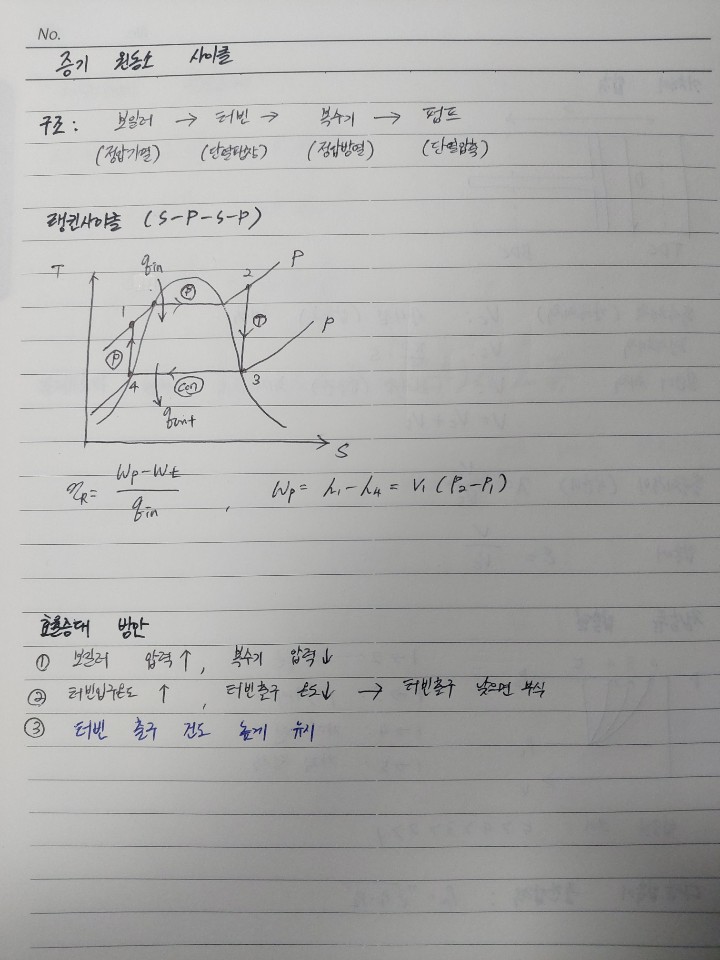 No.
증기 원동소 사이클
구조 : 보일러 → 터빈 → 복수기 → 펌프
(정압가열) (단열팽창) (정압방열) (단열압축)
랭킨사이클 (S-P-S-P)
T
qin
P
2
P
1
P
T
P
4
Con
3
qout
S
ηR = Wp-Wt / qin , Wp = h1-h4 = V1 (P2-P1)
효율증대 방안
① 보일러 압력↑, 복수기 압력↓
② 터빈입구온도 ↑, 터빈출구 온도↓ → 터빈출구 낮으면 부식
③ 터빈 출구 건도 높게 유지